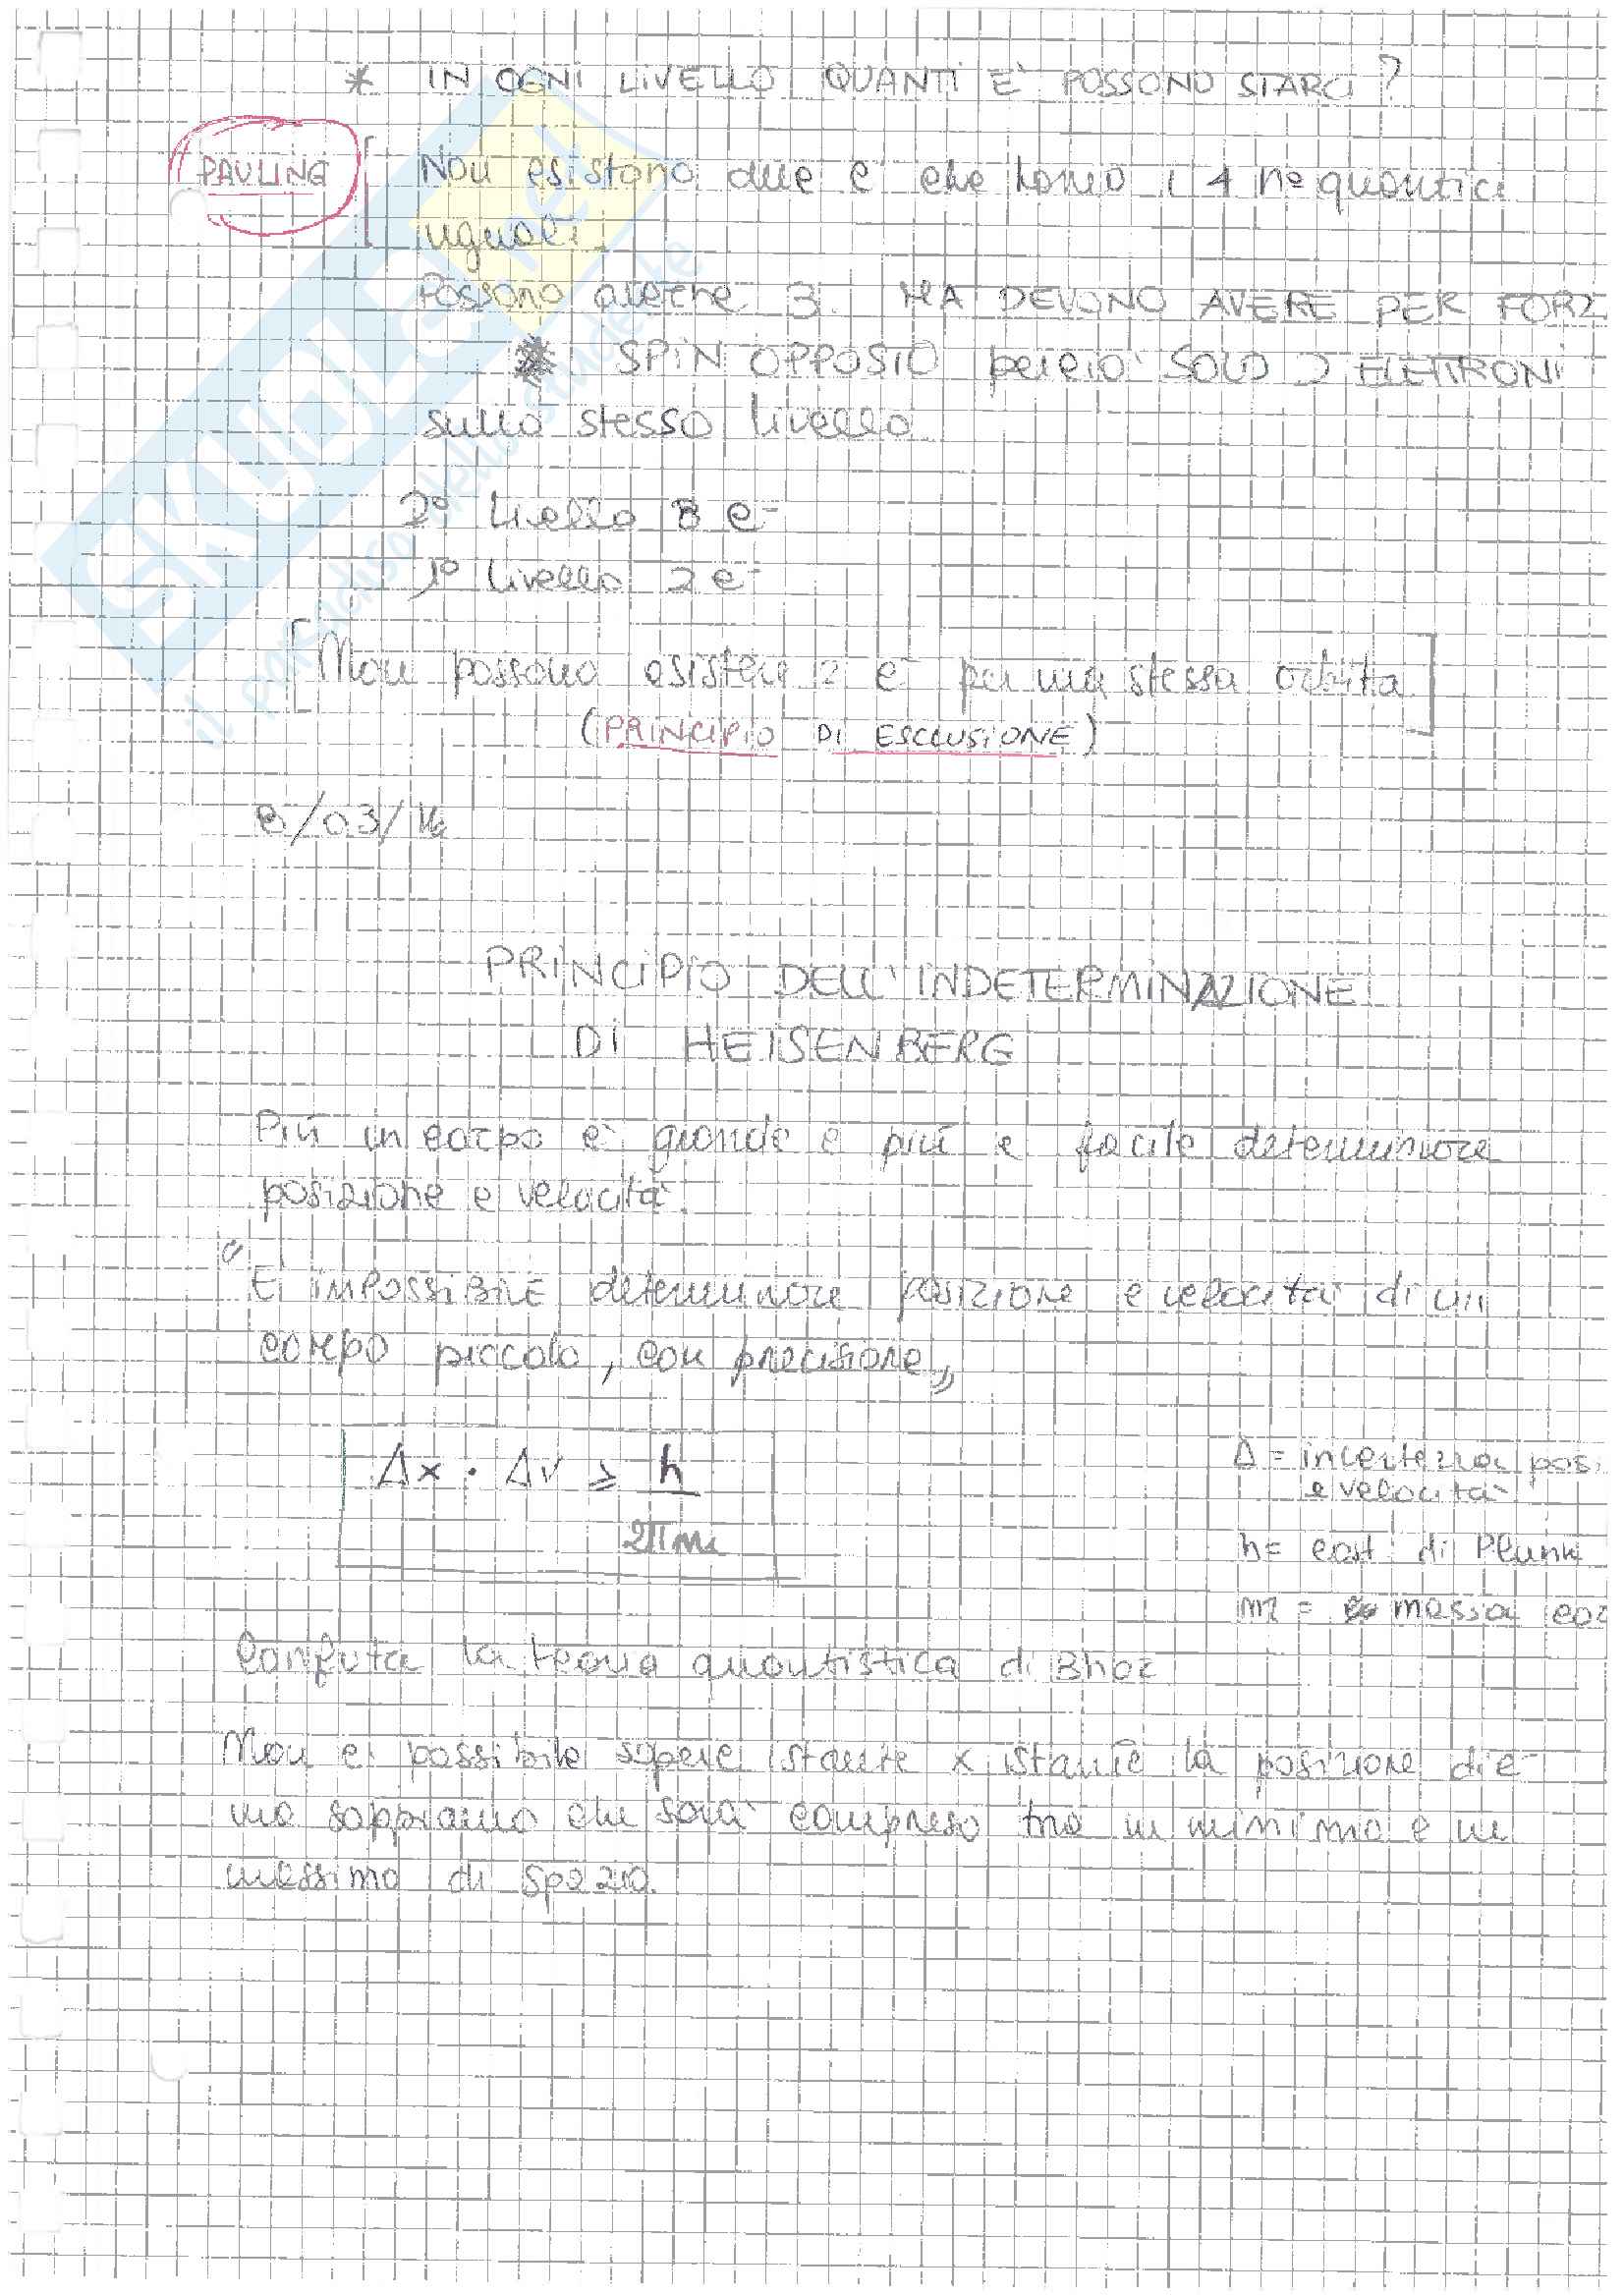 * IN OGNI LIVELLO QUANTI E⁻ POSSONO STARCI?
PAULING
Non esistono due e⁻ che hanno i 4 nº quantici
uguali.
Possono averne 3. MA DEVONO AVERE PER FORZ
SPIN OPPOSTO perciò SOLO 2 ELETTRONI
sullo stesso livello
2º livello 8 e⁻
1º livello 2 e⁻
Non possono esistere 2 e⁻ per una stessa orbita
(PRINCIPIO DI ESCLUSIONE)
/03/
PRINCIPIO DELL'INDETERMINAZIONE
DI HEISENBERG
Più un corpo è grande e più è facile determinare
posizione e velocità.
"È IMPOSSIBILE determinare posizione e velocità di un
corpo piccolo, con precisione"
Δx · Δv ≥ h
2πm
Δ = incertezza pos.
e velocità
h = cost. di Plunk
m = massa cor
Confuta la teoria quantistica di Bhor
Non è possibile sapere istante x istante la posizione di e⁻
ma sappiamo che sarà compreso tra un minimo e un
massimo di spazio.
SKUOLA.net
il paradiso dello studente